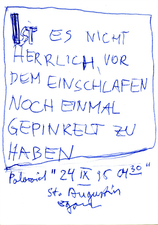 IST ES NICHT
HERRLICH, VOR
DEM EINSCHLAFEN
NOCH EINMAL
GEPINKELT ZU
HABEN
"24 IX 95 04 30"
St. Augustin